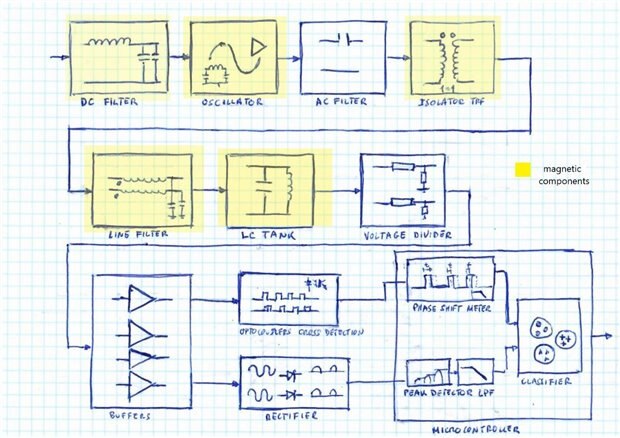 DC FILTER
OSCILLATOR
AC FILTER
1=1
ISOLATOR TRF
LINE FILTER
LC TANK
VOLTAGE DIVIDER
magnetic
components
OPTOCOUPLERS CROSS DETECTION
PHASE SHIFT METER
BUFFERS
RECTIFIER
PEAK DETECTOR LPF
CLASSIFIER
MICROCONTROLLER